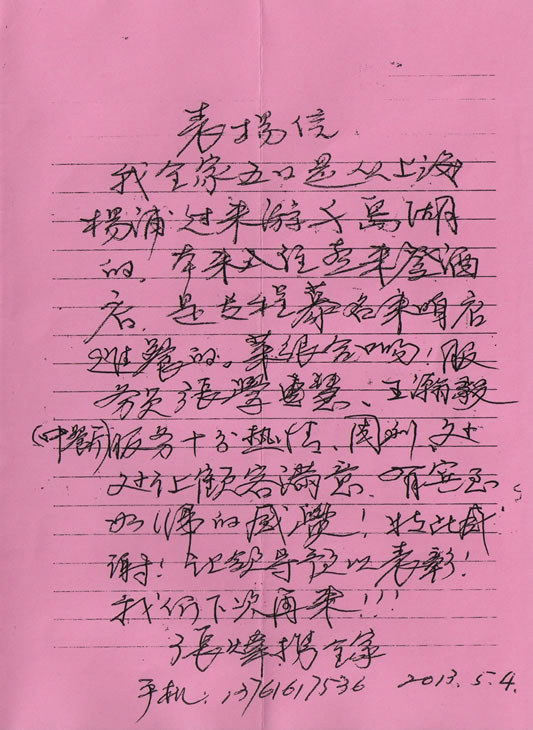 表揚信
我全家五口是从上海
楊浦过来游千島湖
的。本来入住喜来登酒
店，是专程慕名来咱店
進餐的。菜很合口吻！服
务员張學慧、王瀚毅
(中餐厅)服务十分热情、周到，处
处让顧客满意，有宾至
如归的感覺！特此感
谢！让领导予以表彰！
我们下次再来！！！
張煒携全家
手机：13761617536 2013.5.4.